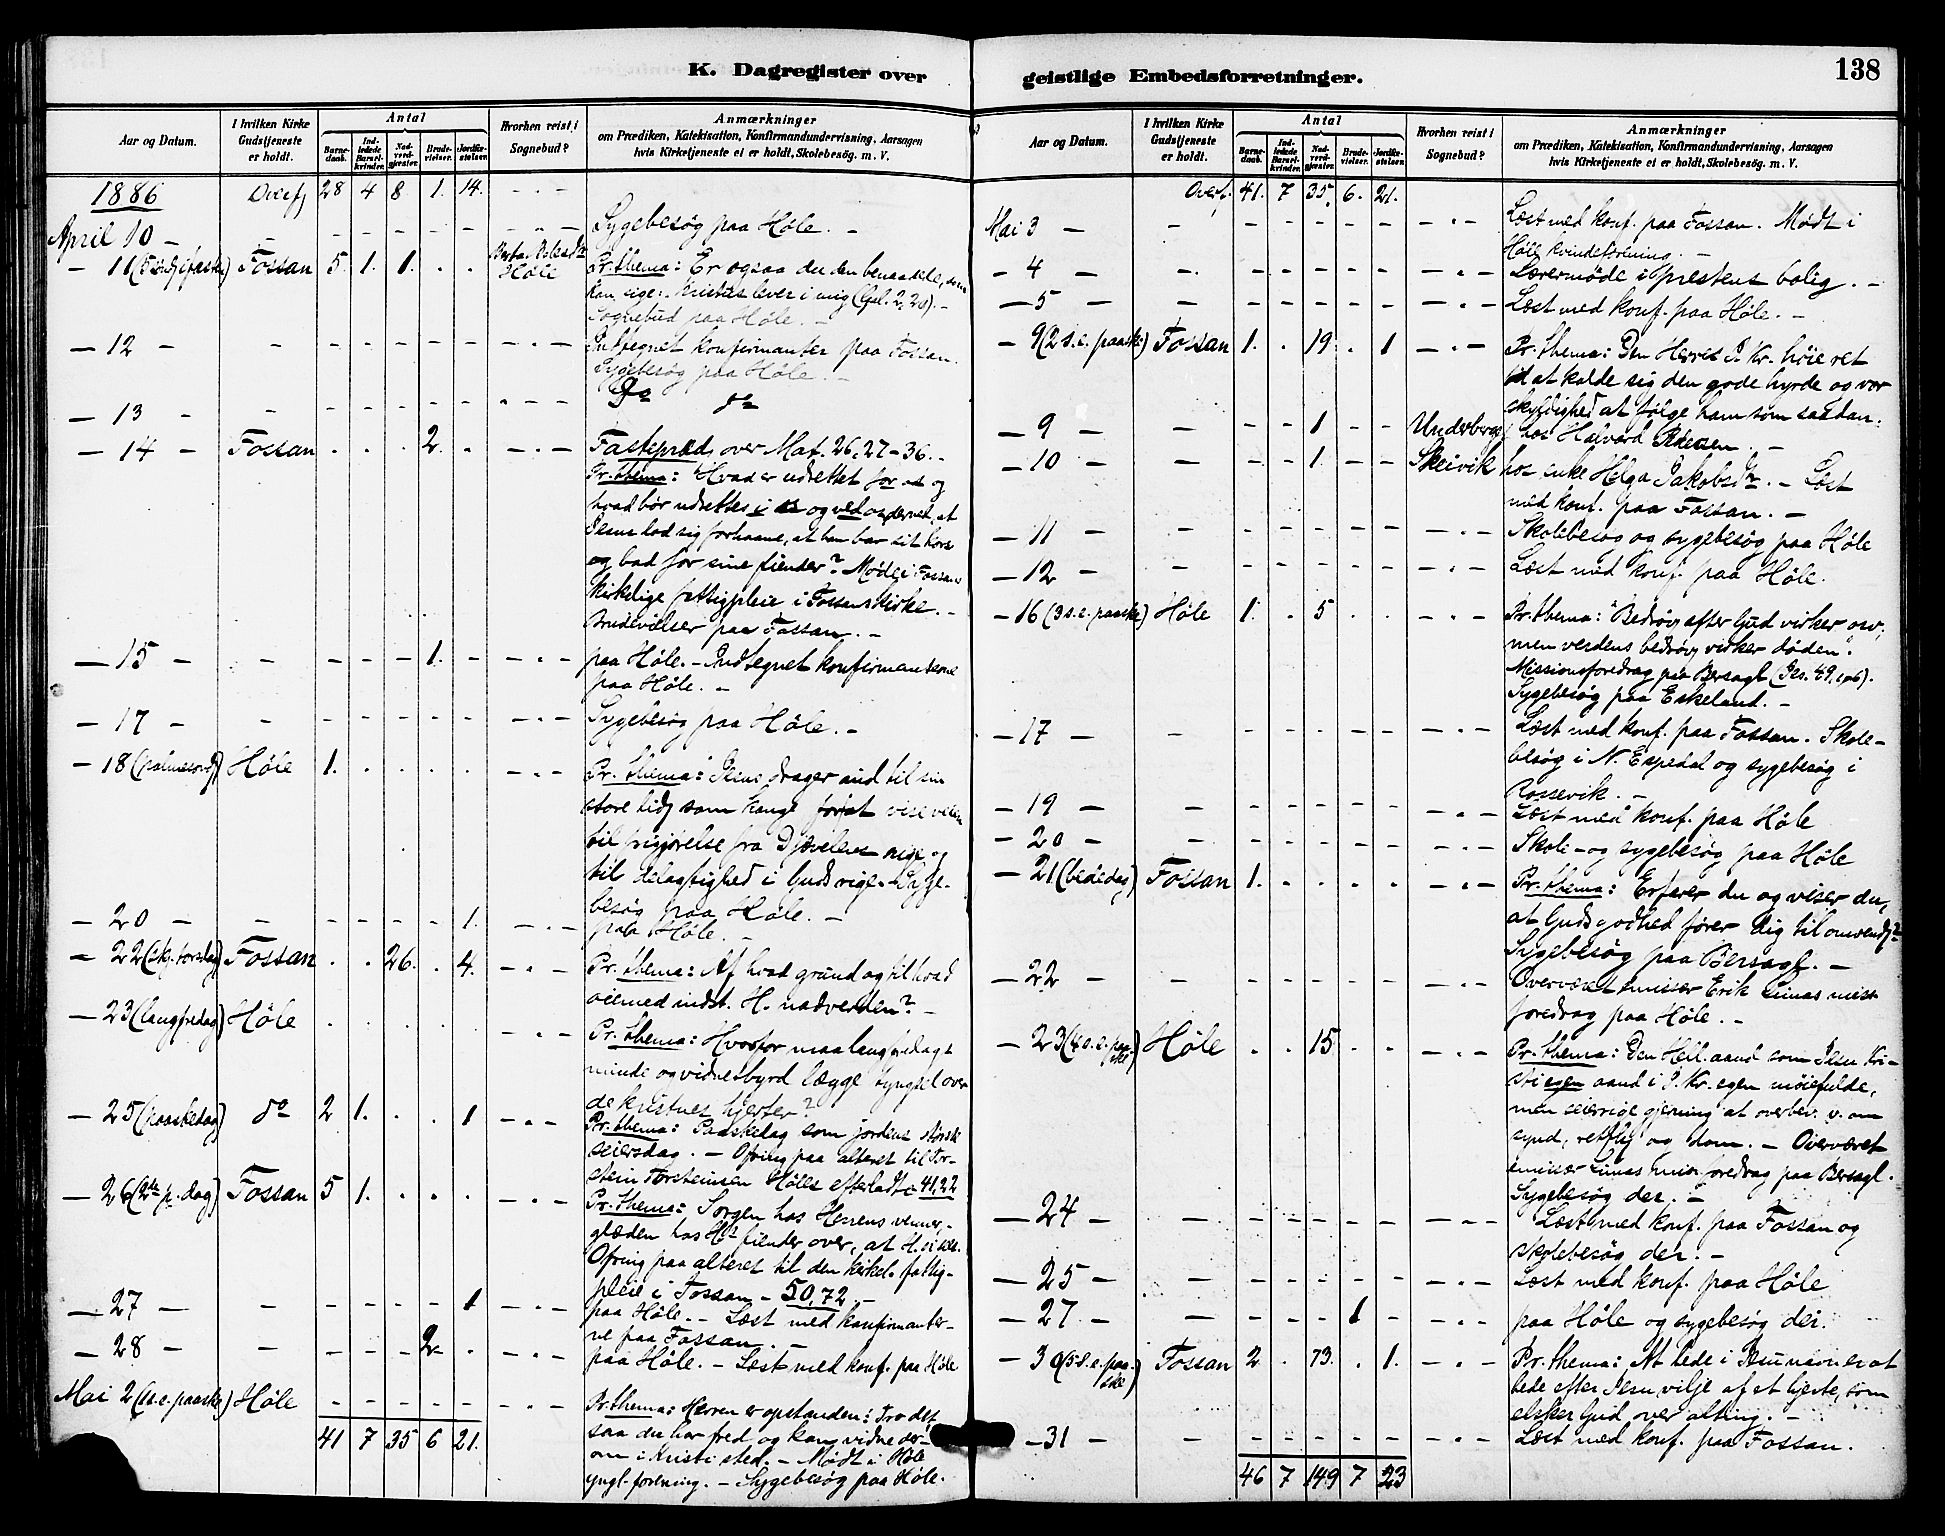 K. Dagregister over
geistlige Embedsforretninger.
138
Aar og Datum.
I hvilken Kirke
Gudstjeneste
er holdt.
Antal
Barne-
daab.
Ind-
ledede
Barsel-
kvinder.
Nad-
verd-
gjæster.
Brude-
vielser.
Jordfæ-
stelser.
Hvorhen reist i
Sognebud?
Anmærkninger
om Prædiken, Katekisation, Konfirmandundervisning, Aarsagen
hvis Kirketjeneste ei er holdt, Skolebesög. m. V.
1886 Overf. 28 4 8 1. 14. - " -
April 10 - - - - - - - - " - Sygebesøg paa Høle. -
- 11 (5 sønd. i faste) Fossan 5. 1. 1. . . Høle Pr. thema: Er ogsaa du den benaadede, som
kan sige: Kristus lever i mig (Gal. 2, 20). -
Sognebud paa Høle. -
- 12 - - - - - - - - " - Indtegnet konfirmanter paa Fossan.
Sygebesøg paa Høle. -
- 13 - - - - - - - - " - Do do
- 14 - Fossan . . . 2. . - " - Fastepræd. over Mat. 26, 27-36. -
Pr. thema: Hvad er udrettet for os og
hvad bør udrettes i os og ved os derved, at
Jesus lod sig forhaane, at han bar sit kors
og bad for sine fiender? Møde i Fossans
kirkelige fattigpleie i Fossans kirke. -
Brudevielser paa Fossan. -
- 15 - - - - - 1. - - " - paa Høle. - Indtegnet konfirmanterne
paa Høle. -
- 17 - - - - - - - - " - Sygebesøg paa Høle. -
- 18 (palmesønd.) Høle 1. . . . . - " - Pr. thema: Jesus drager ind til sin
store lidg som konge for at vise veien
til frigjørelse fra Djævelens rige og
til delagtighed i Guds rige. - Syge-
besøg paa Høle. -
- 20 - - - - - - 1. - " - paa Høle. -
- 22 (skj. torsdag) Fossan . . 26. . 4. - " - Pr. thema: Af hvad grund og til hvad
øiemed indst. H. nadverden? -
- 23 (langfredag) Høle . . . . . - " - Pr. thema: Hvorfor maa langfredags
minde og vidnesbyrd lægge tyngsel over
de kristnes hjerter?
- 25 (paaskedag) do 2 1. . . 1 - " - Pr. thema: Paaskedag som jordens største
seiersdag. - Ofring paa alteret til Tor-
stein Torsteinsen Høles efterladte 41,22
- 26 (2den p. dag) Fossan 5 1. . . . - " - Pr. thema: Sorgen hos Herrens venner,
glæden hos Hs fiender over, at H.
Ofring paa alteret til den kirkel. fattig-
pleie i Fossan - 50,72. -
- 27 - - - - - - 1 - " - paa Høle. - Læst med konfirmanter-
ne paa Fossan. -
- 28 - - - - 2 . - " - paa Høle. - Læst med konf. paa Høle
Mai 2 (1 s. e. paaske) Høle - - - - - - " - Pr. thema: Herren er opstanden: Tro det
saa du har fred og kan vidne der-
om i Kristi sted. - Mødt i Høle
yngl.-forening. - Sygebesøg paa Høle.
41 7 35 6 21.
Aar og Datum.
I hvilken Kirke
Gudstjeneste
er holdt.
Antal
Barne-
daab.
Ind-
ledede
Barsel-
kvinder.
Nad-
verd-
gjæster.
Brude-
vielser.
Jordfæ-
stelser.
Hvorhen reist i
Sognebud?
Anmærkninger
om Prædiken, Katekisation, Konfirmandundervisning, Aarsagen
hvis Kirketjeneste ei er holdt, Skolebesög. m. V.
Overf. 41. 7 35. 6. 21.
Mai 3 - - - - - - - - " - Læst med konf. paa Fossan. Mødt i
Høle kvindeforening. -
- 4 - - - - - - - " - Lærermøde i prestens bolig. -
- 5 - - - - - - - - " - Læst med konf. paa Høle. -
- 9 (2 s. e. paaske) Fossan 1. . 19. . 1 - " - Pr. thema: Den Herres J. Kr. høie ret
til at kalde sig den gode hyrde og vor
skyldighed at følge ham som saadan.
- 9 - - - - 1 - - Underberge hos Halvard
- 10 - - - - 1. - - Skeivik hos enke Helga Jakobsdr. - Læst
med konf. paa Fossan. -
- 11 - - - - - - - - " - Skolebesøg og sygebesøg paa Høle
- 12 - - - - - - - - " - Læst med konf. paa Høle.
- 16 (3 s. e. paaske) Høle 1. . 5 . . - " - Pr. thema: "Bedrøv. efter Gud virker osv,
men verdens bedrøv. virker døden".
Missionsforedrag paa Bersagl (Jes. 49, 1-6).
Sygebesøg paa Eskeland. -
- 17 - - - - - - - - " - Læst med konf. paa Fossan. Skole-
besøg i N. Espedal og sygebesøg i
Rossevik. -
- 19 - - - - - - - - " - Læst med konf. paa Høle
- 20 - - - - - - - - " - Skole- og sygebesøg paa Høle
- 21 (bededag) Fossan 1. - - - - - " - Pr. thema: Erfarer du og viser du,
at Guds godhed fører dig til omvend.?
Sygebesøg paa Bersagl. -
- 22 - - - - - - - " - Overværet emissær Erik Linas miss.
foredrag paa Høle. -
- 23 (4 s. e. paaske) Høle . . 15 . . - " - Pr. thema: Den Heil. aand som Jesu Kri-
sti egen aand i J. Kr. egen møiefulde,
men seierrige gjerning at overbev. v. om
synd, retf. og dom. - Overværet
emissær Linas miss. foredrag paa Bersagl.
Sygebesøg der. -
- 24 - - - - - - - - " - Læst med konf. paa Fossan og
skolebesøg der. -
- 25 - - - - - - - - " - Læst med konf. paa Høle
- 27 - - - - - 1 - - " - paa Høle og sygebesøg der.
- 30 (5 s. e. paaske) Fossan 2 . 73. . 1. - " - Pr. thema: At bede i Jesu navn er at
bede efter Jesu vilje af et hjerte, som
elsker Gud over alting. -
- 31 - - - - - - - " - Læst med konf. paa Fossan.
46 7 149 7 23